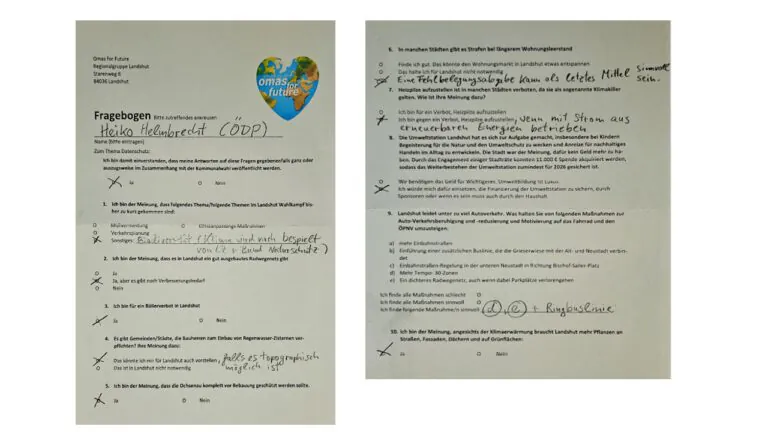 Omas for Future
Regionalgruppe Landshut
Starenweg 6
84036 Landshut
omas
for
future
Fragebogen Bitte zutreffendes ankreuzen
Heiko Helmbrecht (ÖDP)
Name (Bitte eintragen)
Zum Thema Datenschutz:
Ich bin damit einverstanden, dass meine Antworten auf diese Fragen gegebenenfalls ganz oder
auszugsweise im Zusammenhang mit der Kommunalwahl veröffentlicht werden.
Ja O Nein
1. Ich bin der Meinung, dass folgendes Thema/folgende Themen im Landshut Wahlkampf bis-
her zu kurz gekommen sind:
O Müllvermeidung O Hitzeanpassungs-Maßnahmen
O Verkehrsplanung
Sonstiges: Biodiversität (Klima wird noch bespielt
von LZ + Bund Naturschutz)
2. Ich bin der Meinung, dass es in Landshut ein gut ausgebautes Radwegenetz gibt
O Ja
Ja, aber es gibt noch Verbesserungsbedarf
O Nein
3. Ich bin für ein Böllerverbot in Landshut
Ja O Nein
4. Es gibt Gemeinden/Städte, die Bauherren zum Einbau von Regenwasser-Zisternen ver-
pflichten? Ihre Meinung dazu:
Das könnte ich mir für Landshut auch vorstellen, falls es topographisch
möglich ist
O Das ist in Landshut nicht notwendig
5. Ich bin der Meinung, dass die Ochsenau komplett vor Bebauung geschützt werden sollte.
Ja O Nein
6. In manchen Städten gibt es Strafen bei längerem Wohnungsleerstand
O Finde ich gut. Das könnte den Wohnungsmarkt in Landshut etwas entspannen
O Das halte ich für Landshut nicht notwendig
Eine Fehlbelegungsabgabe kann als letztes Mittel sinnvoll
sein.
7. Heizpilze aufzustellen ist in manchen Städten verboten, da sie als sogenannte Klimakiller
gelten. Wie ist Ihre Meinung dazu?
O Ich bin für ein Verbot, Heizpilze aufzustellen
Ich bin gegen ein Verbot, Heizpilze aufzustellen, wenn mit Strom aus
erneuerbaren Energien betrieben
8. Die Umweltstation Landshut hat es sich zur Aufgabe gemacht, insbesondere bei Kindern
Begeisterung für die Natur und den Umweltschutz zu wecken und Anreize für nachhaltiges
Handeln im Alltag zu entwickeln. Die Stadt war der Meinung, dafür kein Geld mehr zu ha-
ben. Durch das Engagement einiger Stadträte konnten 11.000 € Spende akquiriert werden,
sodass das Weiterbestehen der Umweltstation zumindest für 2026 gesichert ist.
O Wir benötigen das Geld für Wichtigeres. Umweltbildung ist Luxus.
Ich würde mich dafür einsetzen, die Finanzierung der Umweltstation zu sichern, durch
Sponsoren oder wenn es sein muss auch durch den Haushalt
9. Landshut leidet unter zu viel Autoverkehr. Was halten Sie von folgenden Maßnahmen zur
Auto-Verkehrsberuhigung und -reduzierung und Motivierung auf das Fahrrad und den
ÖPNV umzusteigen.
a) mehr Einbahnstraßen
b) Einführung einer zusätzlichen Buslinie, die die Grieserwiese mit der Alt- und Neustadt verbin-
det
c) Einbahnstraßen-Regelung in der unteren Neustadt in Richtung Bischof-Sailer-Platz
d) Mehr Tempo- 30-Zonen
e) Ein dichteres Radwegenetz, auch wenn dabei Parkplätze verlorengehen
Ich finde alle Maßnahmen schlecht O
Ich finde alle Maßnahmen sinnvoll O
Ich finde folgende Maßnahme/n sinnvoll d, e + Ringbuslinie
10. Ich bin der Meinung, angesichts der Klimaerwärmung braucht Landshut mehr Pflanzen an
Straßen, Fassaden, Dächern und auf Grünflächen:
Ja O Nein